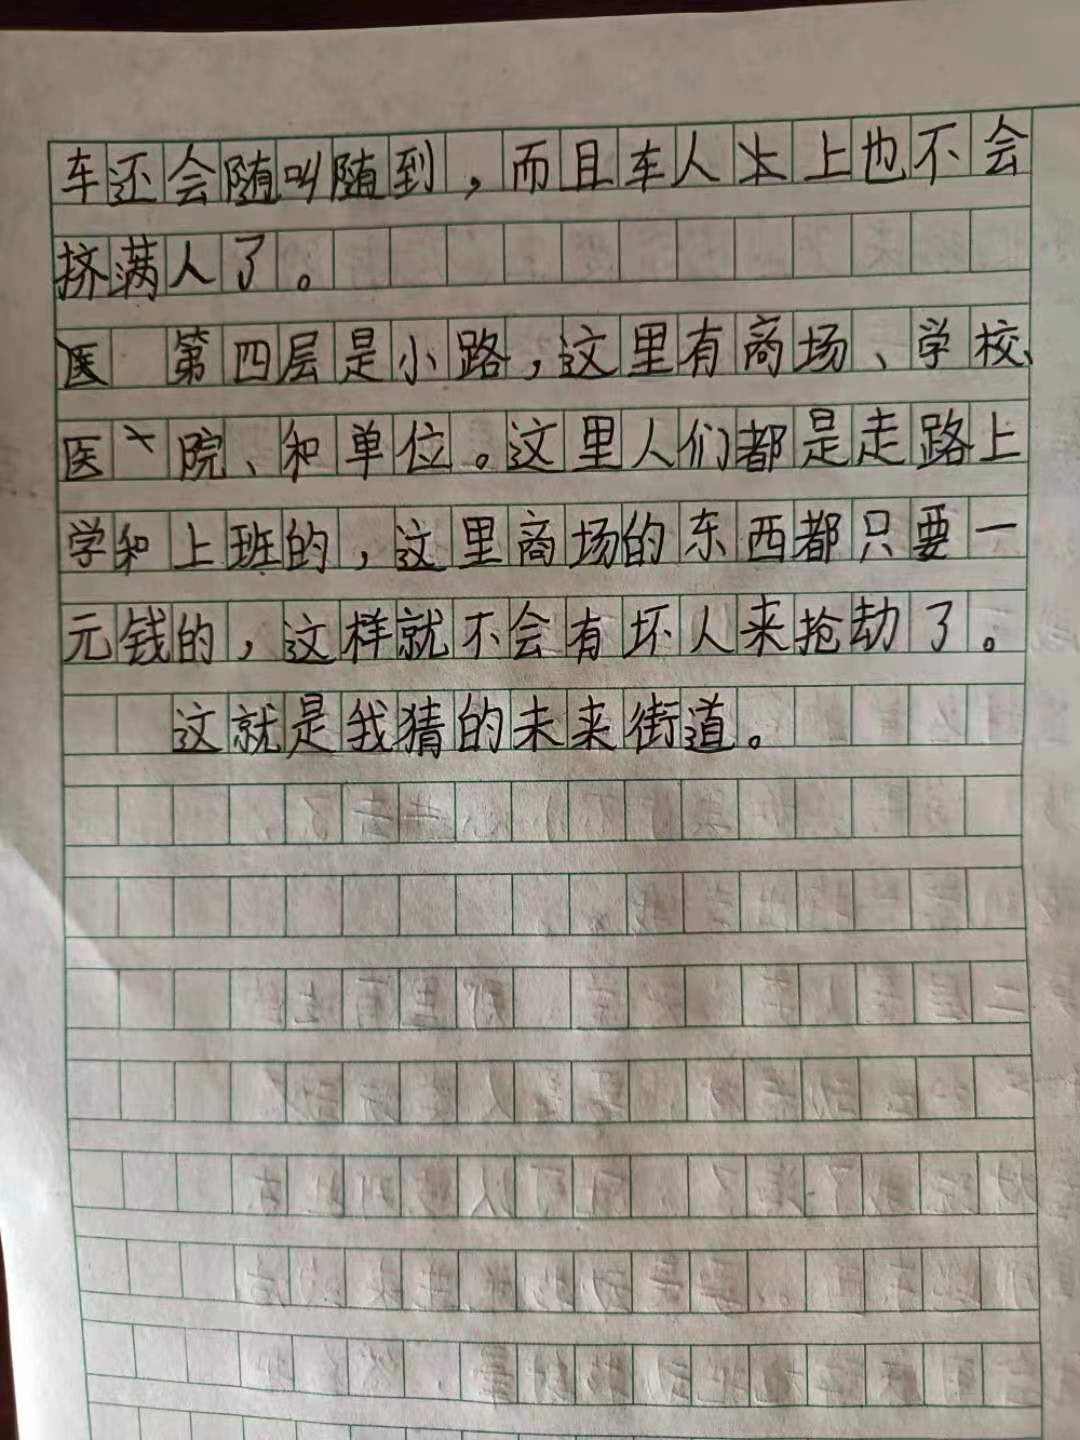 车还会随叫随到，而且车人上也不会
挤满人了。
医 第四层是小路，这里有商场、学校、
医院、和单位。这里人们都是走路上
学和上班的，这里商场的东西都只要一
元钱的，这样就不会有坏人来抢劫了。
这就是我猜的未来街道。